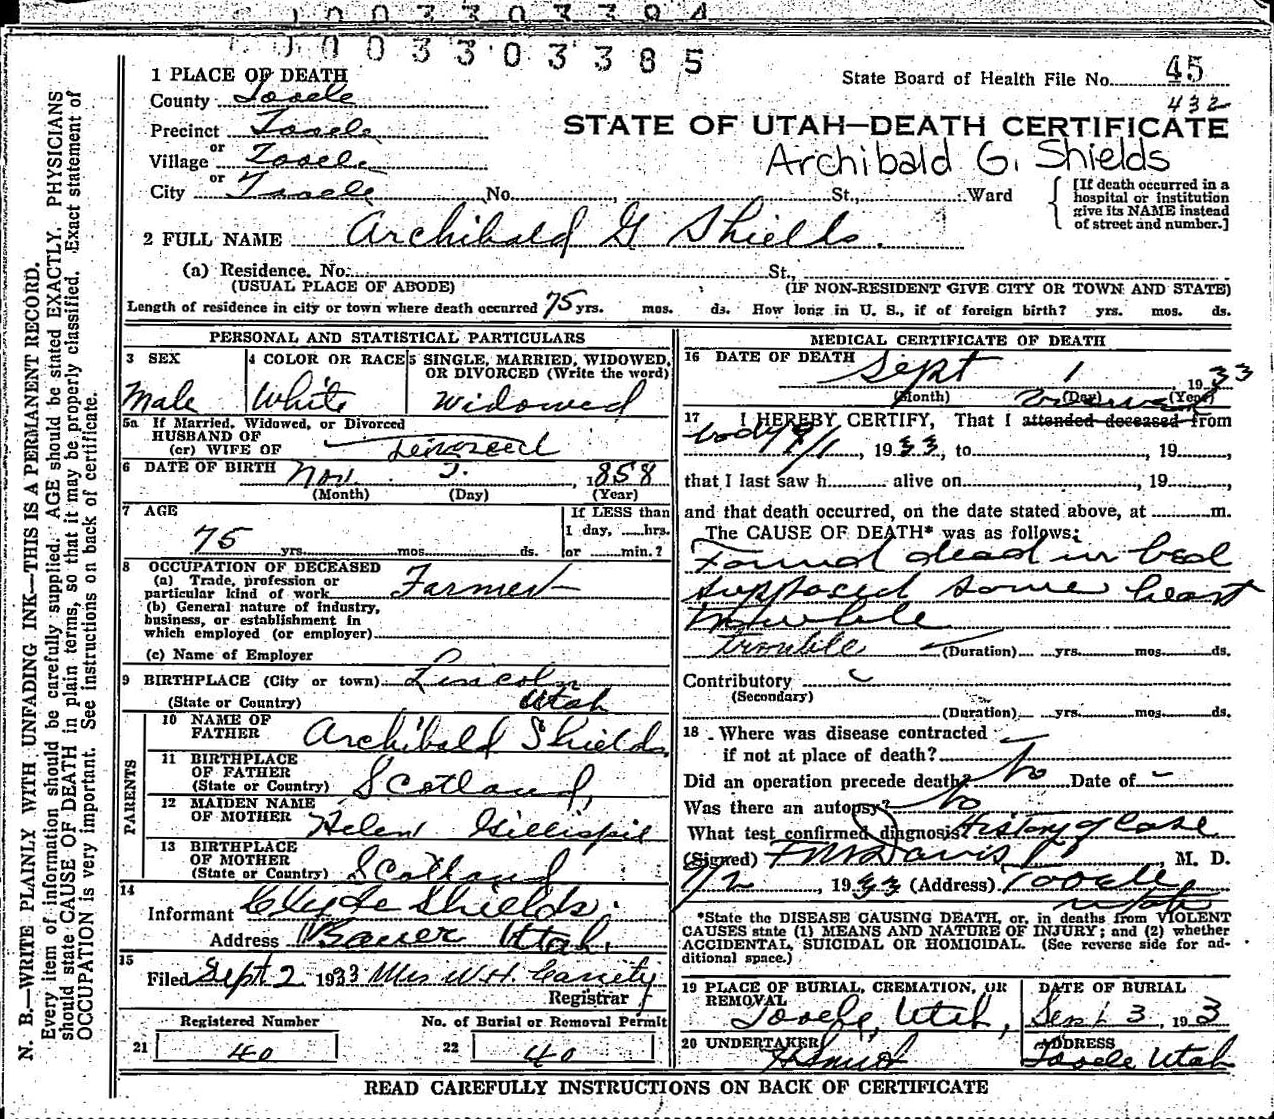 0003303385
1 PLACE OF DEATH
County Tooele
State Board of Health File No. 45
432
Precinct Tooele
or
Village Tooele
or
City Tooele No. St., Ward
STATE OF UTAH—DEATH CERTIFICATE
Archibald G. Shields
[If death occurred in a
hospital or institution
give its NAME instead
of street and number.]
2 FULL NAME Archibald G Shields.
(a) Residence. No. St.,
(USUAL PLACE OF ABODE) (IF NON-RESIDENT GIVE CITY OR TOWN AND STATE)
Length of residence in city or town where death occurred 75 yrs. mos. ds. How long in U. S., if of foreign birth? yrs. mos. ds.
PERSONAL AND STATISTICAL PARTICULARS
3 SEX
Male
4 COLOR OR RACE
White
5 SINGLE, MARRIED, WIDOWED,
OR DIVORCED (Write the word)
Widowed
5a If Married, Widowed, or Divorced
HUSBAND OF
(or) WIFE OF
6 DATE OF BIRTH Nov. 1858
(Month) (Day) (Year)
7 AGE
75 yrs. mos. ds.
If LESS than
1 day, hrs.
or min.?
8 OCCUPATION OF DECEASED
(a) Trade, profession or
particular kind of work Farmer
(b) General nature of industry,
business, or establishment in
which employed (or employer)
(c) Name of Employer
9 BIRTHPLACE (City or town) Lincoln
(State or Country) Utah
PARENTS
10 NAME OF
FATHER Archibald Shields
11 BIRTHPLACE
OF FATHER
(State or Country) Scotland,
12 MAIDEN NAME
OF MOTHER Helen Gillispie
13 BIRTHPLACE
OF MOTHER
(State or Country) Scotland
14
Informant Clyde Shields.
Address Bauer Utah.
15
Filed Sept 2 1933 Mrs W.H. Cassity
Registrar
Registered Number
21 40
No. of Burial or Removal Permit
22 40
MEDICAL CERTIFICATE OF DEATH
16 DATE OF DEATH Sept 1, 1933
(Month) (Day) (Year)
17 I HEREBY CERTIFY, That I attended deceased from
body 9/1, 1933, to , 19 ,
that I last saw h alive on , 19 ,
and that death occurred, on the date stated above, at m.
The CAUSE OF DEATH* was as follows:
Found dead in bed
supposed some heart
trouble
trouble (Duration) yrs. mos. ds.
Contributory
(Secondary)
(Duration) yrs. mos. ds.
18 Where was disease contracted
if not at place of death?
Did an operation precede death? No Date of
Was there an autopsy? No
What test confirmed diagnosis? History of Case
(Signed) Davis, M. D.
9/2, 1933 (Address) Tooele
Utah
*State the DISEASE CAUSING DEATH, or, in deaths from VIOLENT
CAUSES state (1) MEANS AND NATURE OF INJURY; and (2) whether
ACCIDENTAL, SUICIDAL OR HOMICIDAL. (See reverse side for ad-
ditional space.)
19 PLACE OF BURIAL, CREMATION, OR
REMOVAL
Tooele, Utah,
DATE OF BURIAL
Sept 3, 1933
20 UNDERTAKER
ADDRESS
Tooele Utah
READ CAREFULLY INSTRUCTIONS ON BACK OF CERTIFICATE
N. B.—WRITE PLAINLY WITH UNFADING INK—THIS IS A PERMANENT RECORD.
Every item of information should be carefully supplied. AGE should be stated EXACTLY. PHYSICIANS
should state CAUSE OF DEATH in plain terms, so that it may be properly classified. Exact statement of
OCCUPATION is very important. See instructions on back of certificate.